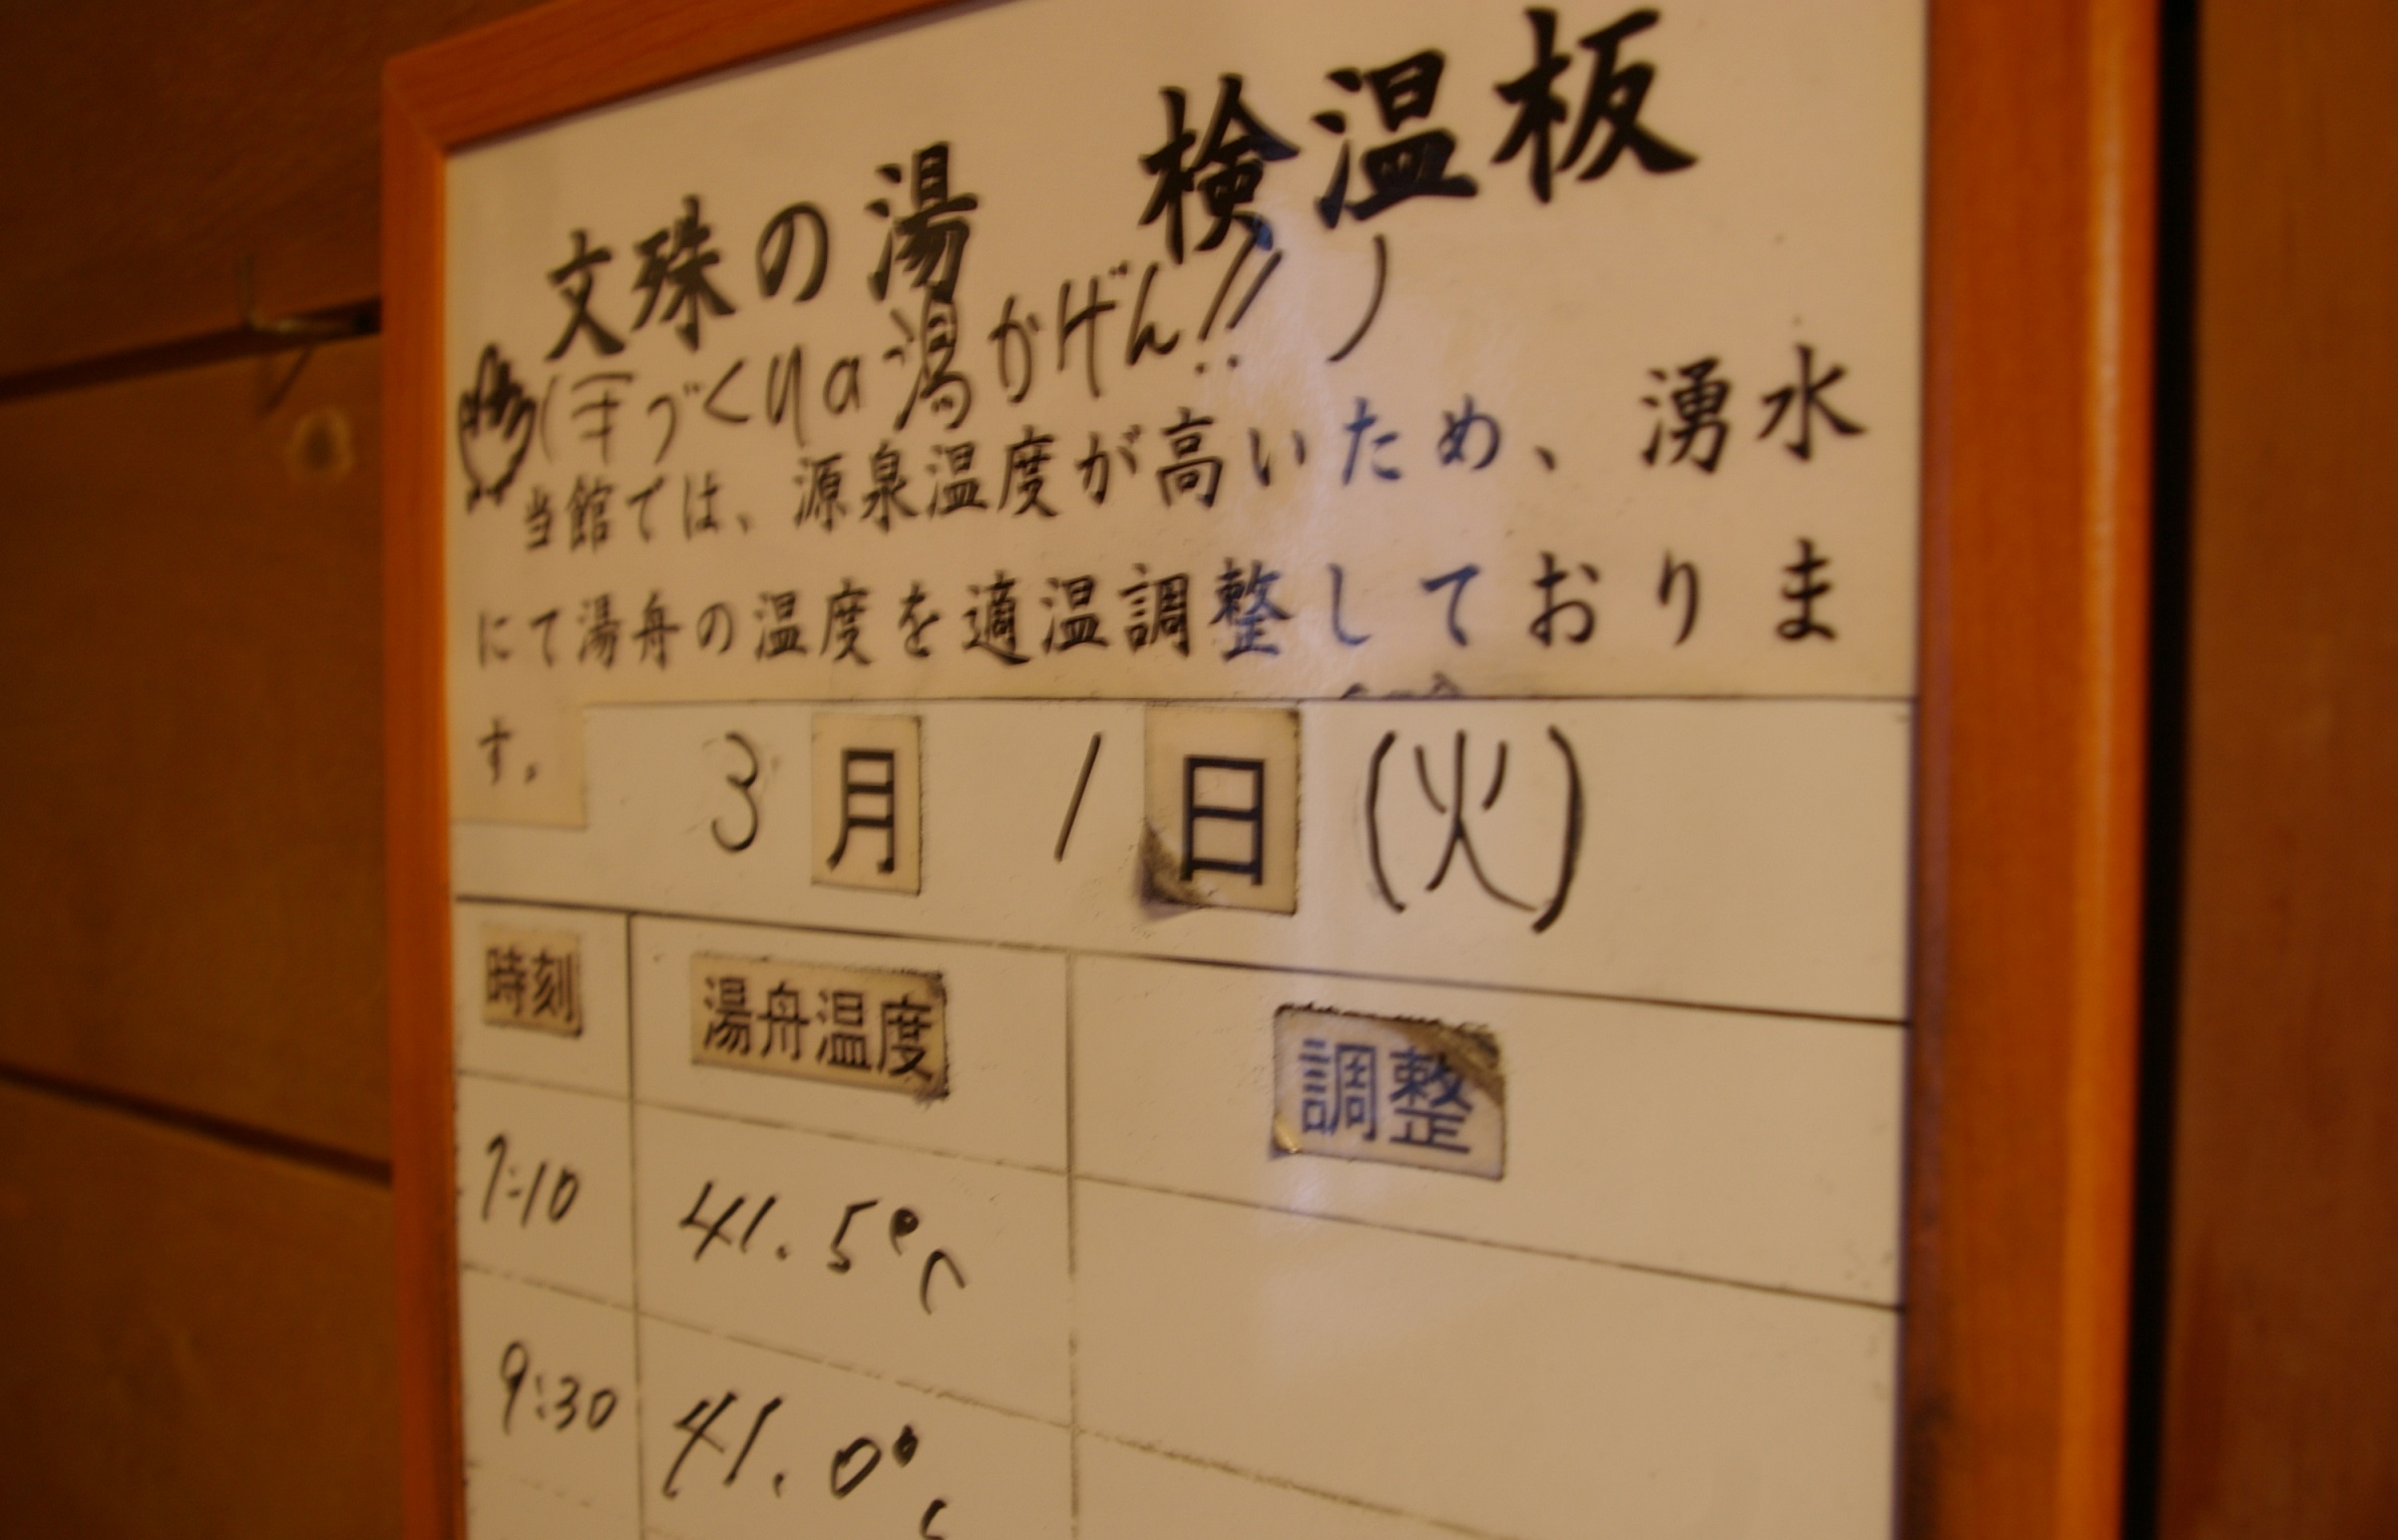 文殊の湯 検温板
(手づくりの湯かげん!!)
当館では、源泉温度が高いため、湧水
にて湯舟の温度を適温調整しておりま
す。
3月 1日 (火)
時刻 湯舟温度 調整
7:10 41.5℃
9:30 41.0℃